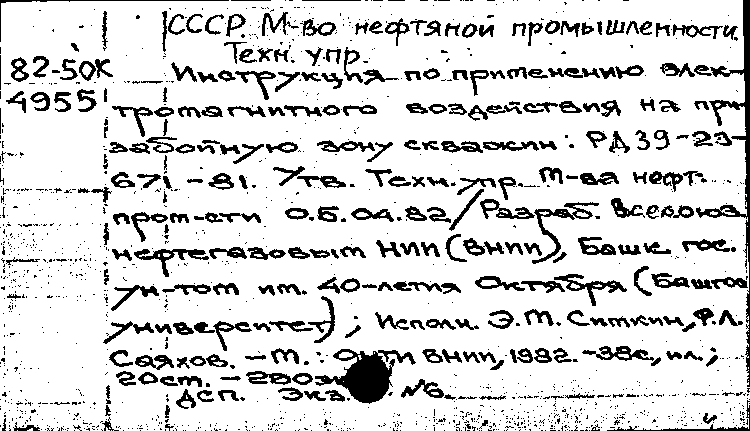 СССР. М-во нефтяной промышленности.
Техн. упр.
82-50К Инструкция по применению элек-
4955 тромагнитного воздействия на при-
забойную зону скважин: РД 39-23-
671-81. Утв. Техн. упр. М-ва нефт.
пром-сти 05.04.82/Разраб. Всесоюз.
нефтегазовым НИИ (ВНИИ), Башк. гос.
ун-том им. 40-летия Октября (Башгос
университет); Исполн. Э.М. Ситкин, Ф.Л.
Саяхов. - М.: ОНТИ ВНИИ, 1982. - 38с., ил.;
20см. - 280
ДСП. Экз. №6.